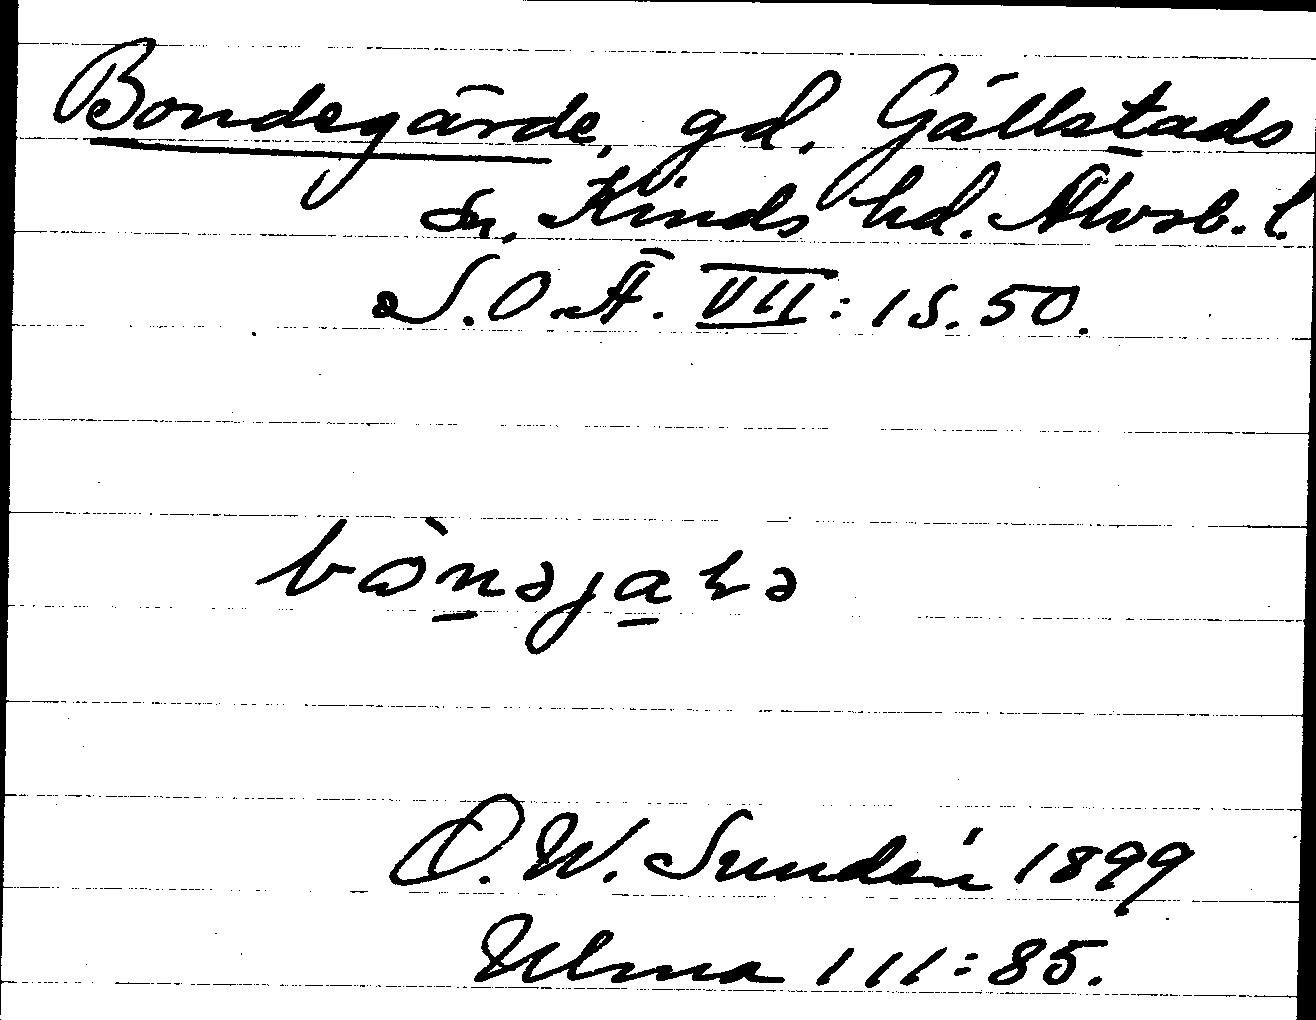 Bondegärde, gd. Gällstads
sn, Kinds hd. Älvsb. l.
S.O.Ä. VII: 1 S. 50.
bònəjaʀə
D. W. Sundén 1899
Ulma 111:85.